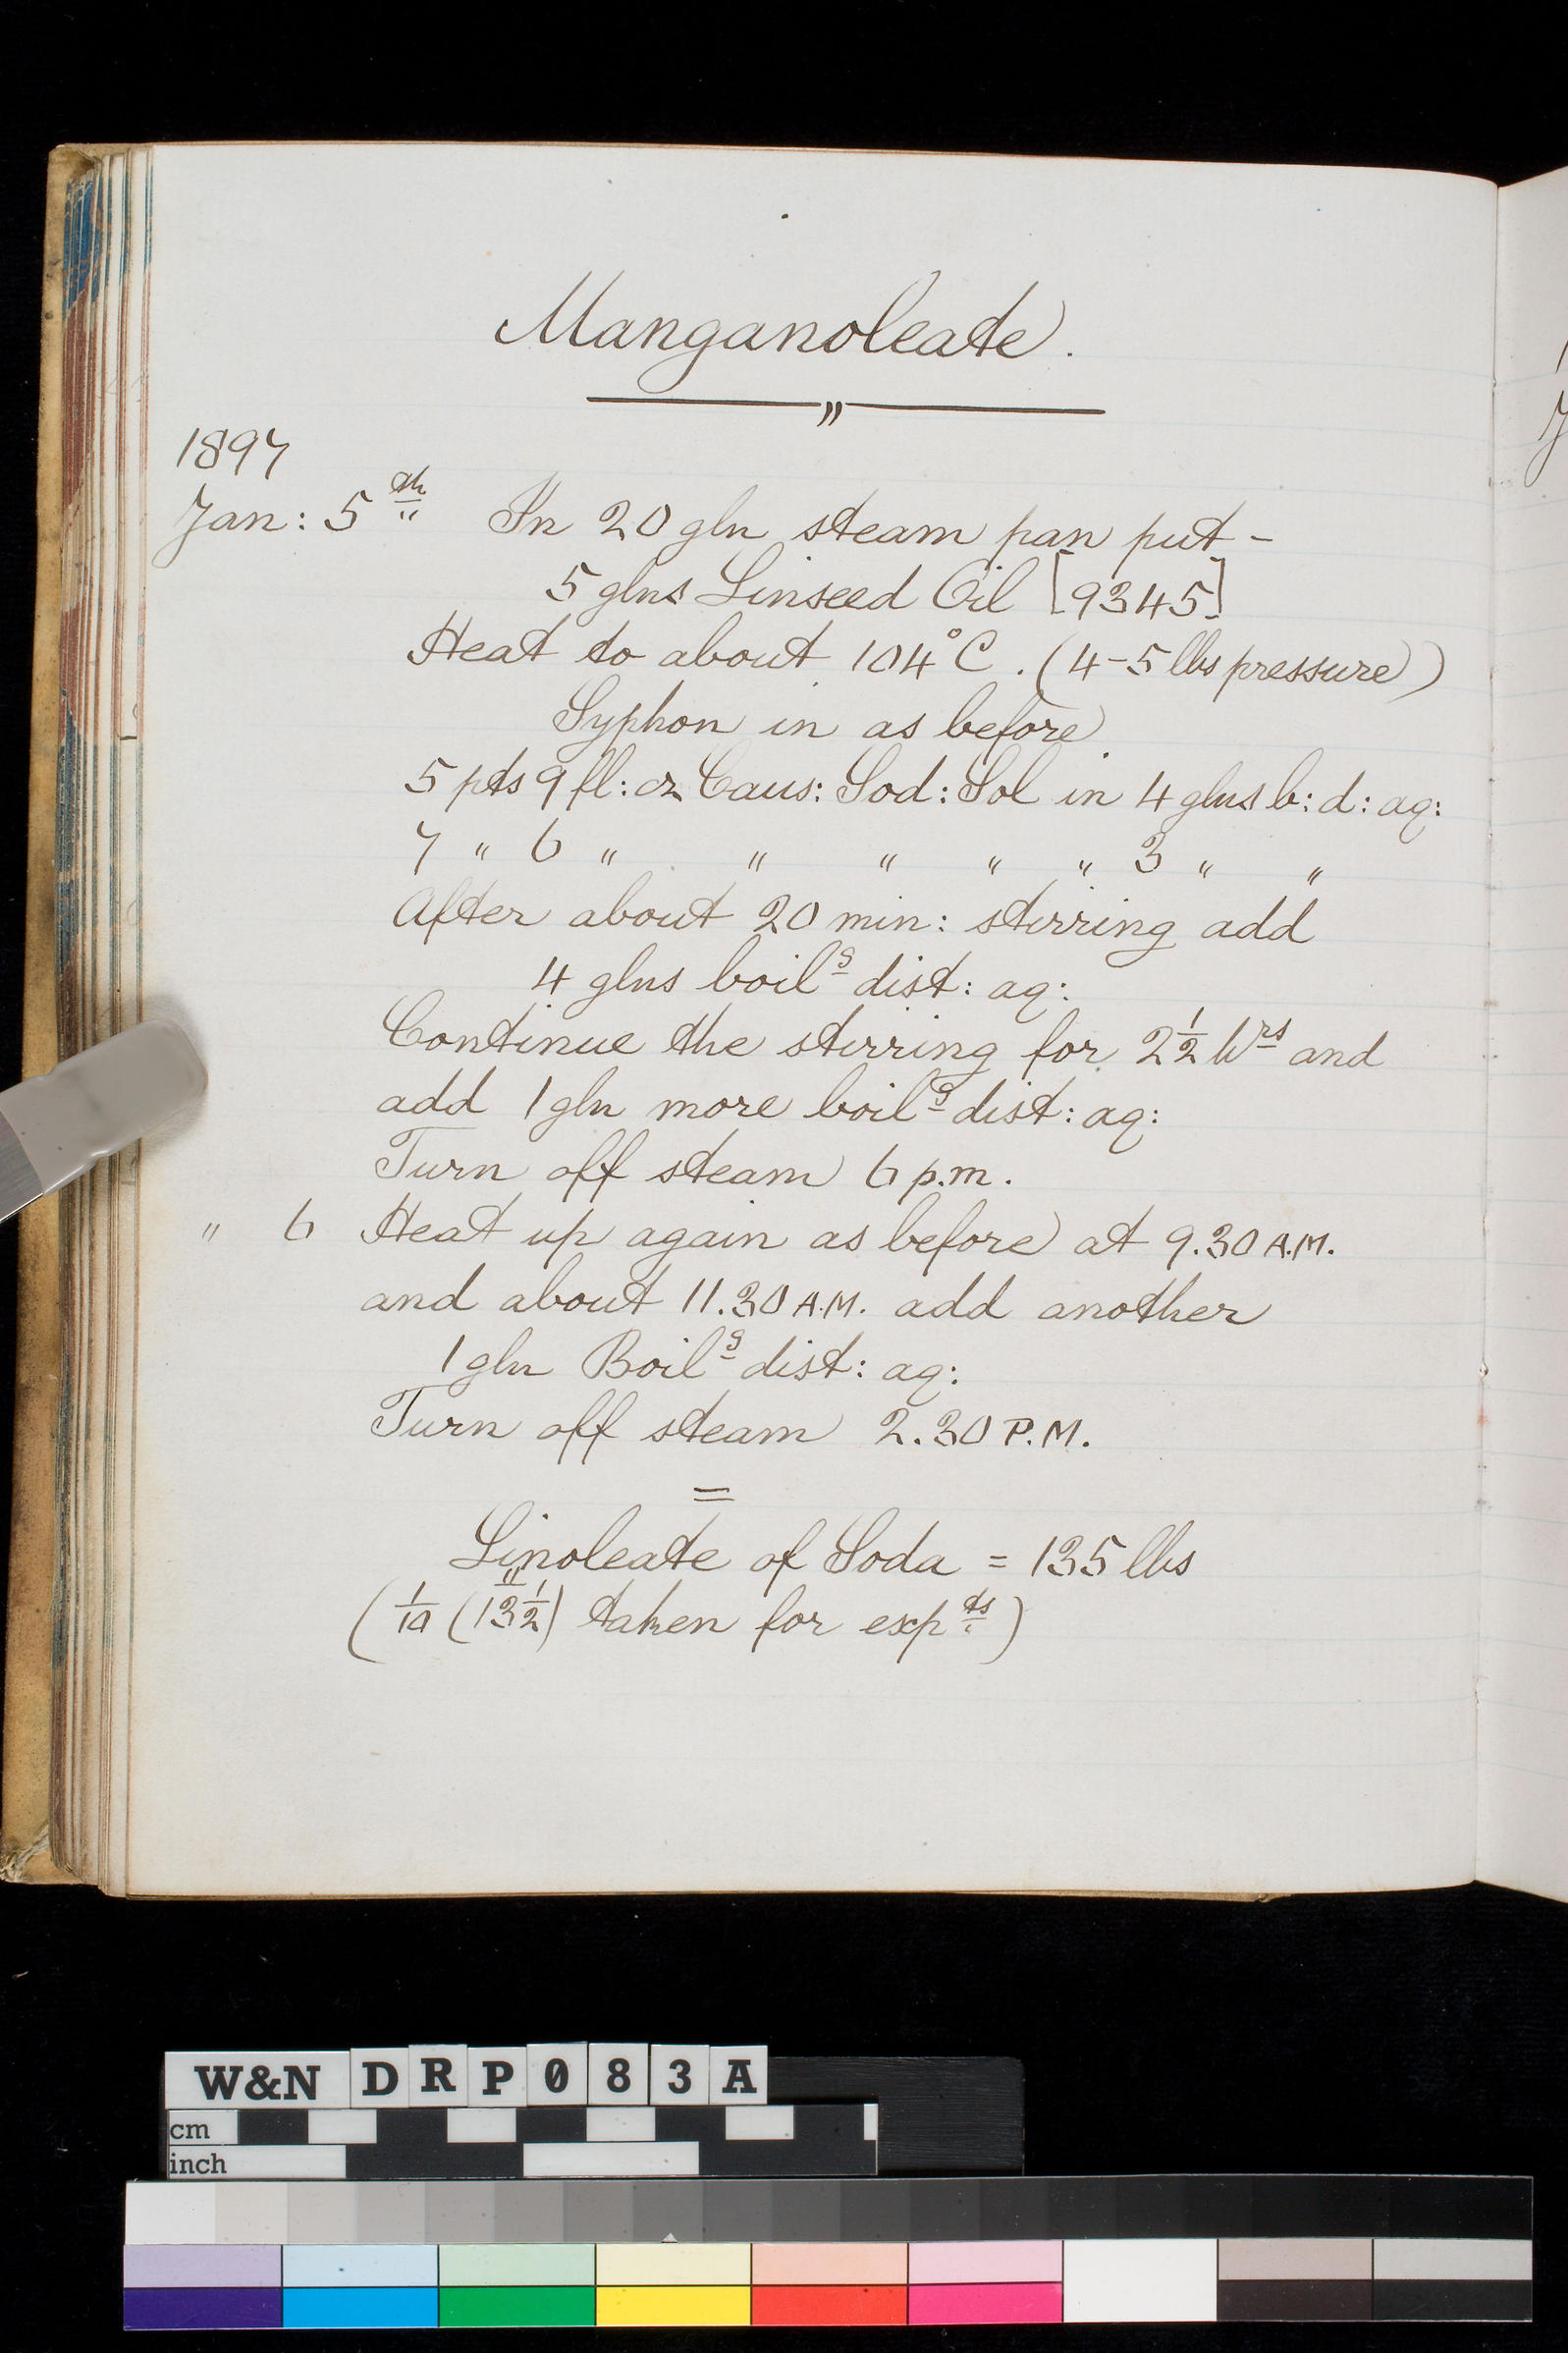 Manganoleate.
"
1897
Jan: 5th In 20 gln steam pan put -
5 glns Linseed Oil [9345]
Heat to about 104°C. (4-5 lbs pressure)
Syphon in as before
5 pts 9 fl: oz Caus: Sod: Sol in 4 glns b: d: aq:
7 " 6 " " " " " 3 " "
After about 20 min: stirring add
4 glns boilg dist: aq:
Continue the stirring for 2½ hrs and
add 1 gln more boilg dist: aq:
Turn off steam 6 p.m.
" 6 Heat up again as before at 9.30 A.M.
and about 11.30 A.M. add another
1 gln Boilg dist: aq:
Turn off steam 2.30 P.M.
=
Linoleate of Soda = 135 lbs
(1/10 (13½) taken for expts)
W&N DRP083A
cm
inch